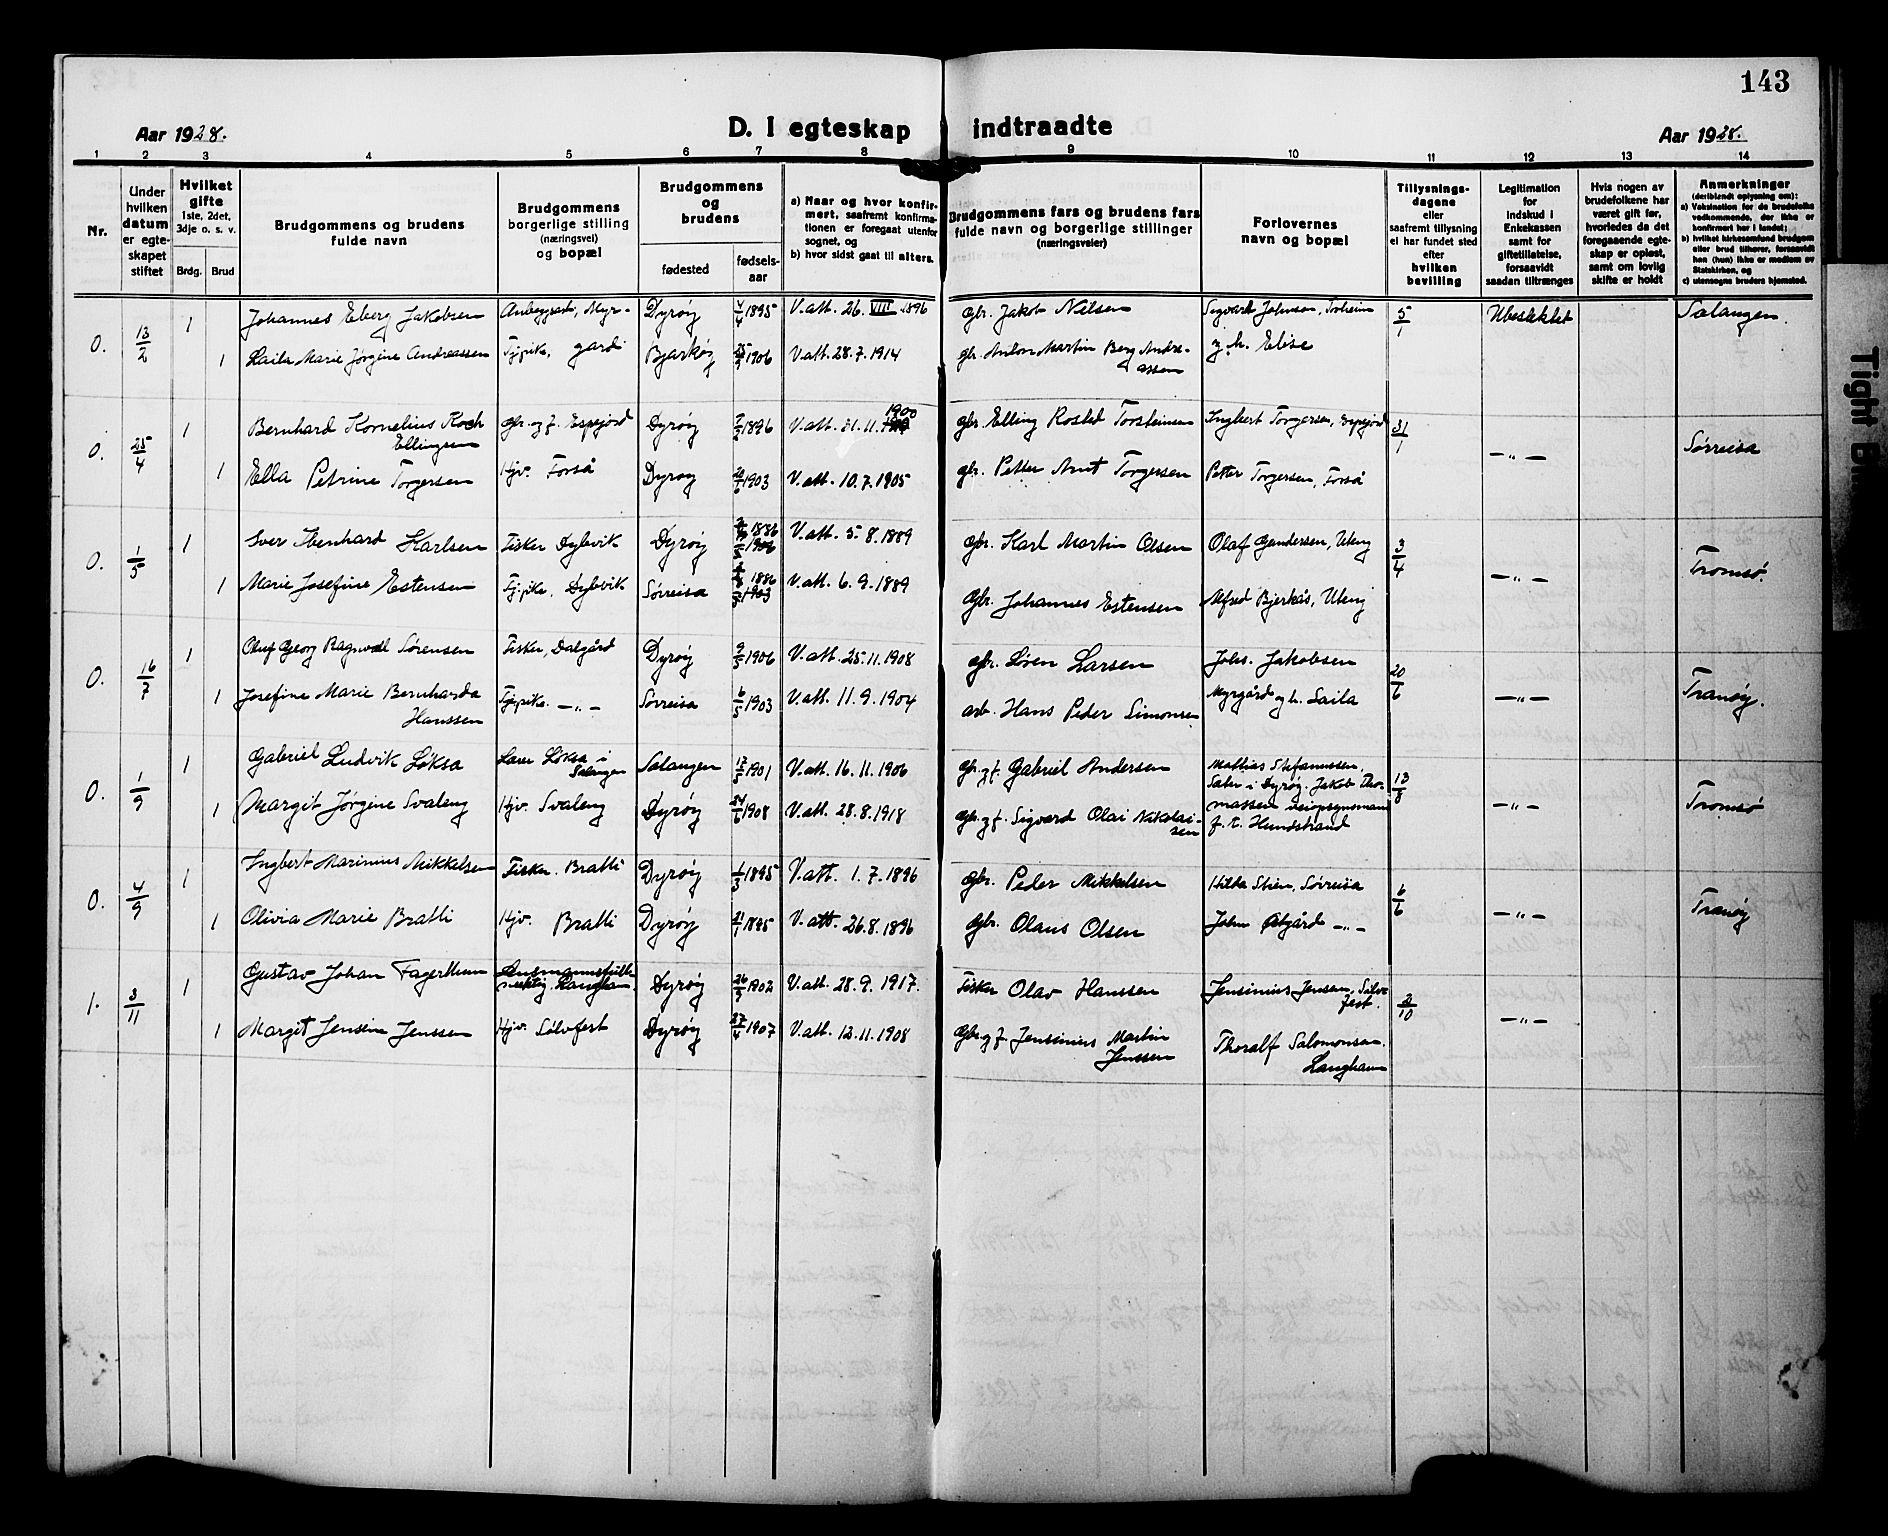 143
Aar 1928.
D. I egteskap indtraadte
Aar 1928.
1 2 3 4 5 6 7 8 9 10 11 12 13 14
Nr.
Under hvilken datum er egteskapet stiftet
Hvilket gifte 1ste, 2det, 3dje o. s. v.
Brdg. Brud
Brudgommens og brudens fulde navn
Brudgommens borgerlige stilling (næringsvei) og bopæl
Brudgommens og brudens
fødested
fødselsaar
a) Naar og hvor konfirmert, saafremt konfirmationen er foregaat utenfor sognet, og
b) hvor sidst gaat til alters.
Brudgommens fars og brudens fars fulde navn og borgerlige stillinger (næringsveier)
Forlovernes navn og bopæl
Tillysningsdagene eller saafremt tillysning ei har fundet sted efter hvilken bevilling
Legitimation for indskud i Enkekassen samt for giftetillatelse, forsaavidt saadan tiltrænges
Hvis nogen av brudefolkene har været gift før, hvorledes da det foregaaende egteskap er opløst, samt om lovlig skifte er holdt
Anmerkninger (deriblandt oplysning om):
a) Vaksination for de brudefolks vedkommende, der ikke er konfirmert her i landet;
b) hvilket kirkesamfund brudgom eller brud tilhører, forsaavidt han (hun) ikke er medlem av Statskirken, og
c) utensogns bruders hjemsted.
0. 13/2 1 Johannes Eberg Jakobsen Anleggsarb, Myr- Dyrøy 4/4 1895 V.att. 26. VIII 1896 gbr. Jakob Nilsen Sigvard Johnsen, Solheim 5/1 Ubesiktet Salangen.
1 Laila Marie Jørgine Andreassen Tj.pike, gård Bjarkøy 25/9 1906 V.att. 28.7.1914 gbr. Anton Martin Berg Andreassen g.h. Elise
0. 25/4 1 Bernhard Kornelius Koch Ellingsen Gbr. og f. Espejord Dyrøy 7/2 1896 V.att. 21.11.1900 gbr. Elling Rosted Torsteinsen Ingbert Torgersen, Espejord 31/1 -"- Sørreisa
1 Ella Petrine Torgersen Hjv. Forså Dyrøy 20/6 1903 V.att. 10.7.1905 gbr. Petter Arnt Torgersen Petter Torgersen, Forså
0. 1/5 1 Iver Ibenhard Karlsen Fisker Dybvik Dyrøy 1886 V.att. 5.8.1889 gbr. Karl Martin Olsen Olaf Gundersen, Uteng 3/4 -"- Tromsø.
1 Marie Josefine Estensen Tj.pike, Dybvik Sørreisa 1886 V.att. 6.9.1889 Gbr. Johannes Estensen Alfred Bjerkås, Uteng
0. 16/7 1 Oluf Georg Ragnvall Sørensen Fisker, Dalgård Dyrøy 9/5 1906 V.att. 25.11.1908 gbr. Søren Larsen Johs. Jakobsen 20/6 -"- Tranøy.
1 Josefine Marie Bernharda Hanssen Tj.pike. -"- Sørreisa 6/5 1903 V.att. 11.9.1904 arb. Hans Peder Simonsen Myrgård og h. Laila
0. 1/9 1 Gabriel Ludvik Løksa Lærer Løksa i Salangen Salangen 17/5 1901 V.att. 16.11.1906 Gbr. og f. Gabriel Andersen Mathias Stefanussen, Sæter i Dyrøy. Jakob Tho- 13/8 -"- Tromsø
1 Margit Jørgine Svaleng Hjv. Svaleng Dyrøy 24/6 1908 V.att. 28.8.1918 Gbr. og f. Sigvard Olai Nikolaisen massen veiopsynsmann f. t. Hundstrand
0. 4/9 1 Ingbert Marinius Mikkelsen Fisker. Bratli Dyrøy 1/3 1895 V.att. 1.7.1896 Gbr. Peder Mikkelsen Hilda Stien, Sørreisa 6/6 -"- Tranøy
1 Olivia Marie Bratli Hjv. Bratli Dyrøy 21/1 1895 V.att. 26.8.1896 Gbr. Olaus Olsen John Østgård -"-
1. 3/11 1 Gustav Johan Fagertun Lensmannsfullmektig. Langhamn. Dyrøy 26/9 1902 V.att. 28.9.1917. Fisker Olav Hanssen Jensinius Jensen, Sølvfest. 2/10 -"-
1 Margit Jensine Jenssen Hjv. Sølvfest Dyrøy 27/4 1907 V.att. 12.11.1908 Gbr. og f. Jensinius Martin Jenssen Thoralf Salomonsen. Langhamn
Tight Bi